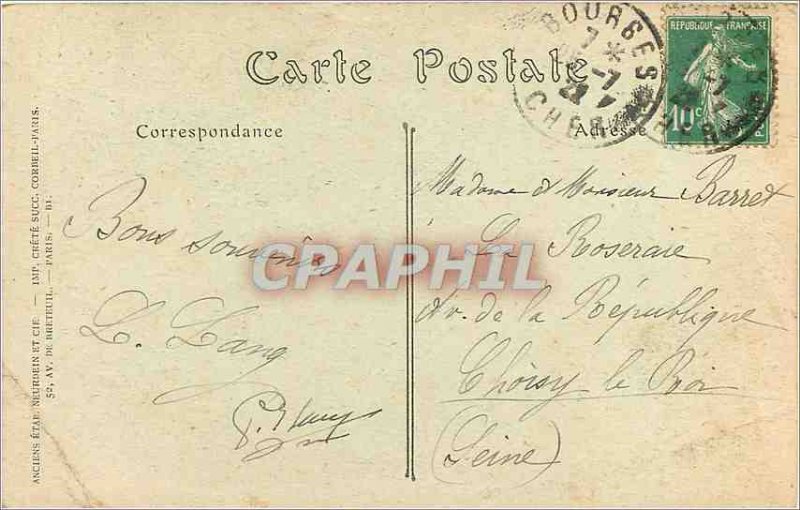 Carte Postale
BOURGES
7 *
-7
22
CHER
REPUBLIQUE FRANÇAISE
10 c
Correspondance
Adresse
Bons souvenirs
L. Lang
Madame et Monsieur Barret
La Roseraie
Av. de la République
Choisy le Roi
(Seine)
CPAPHIL
ANCIENS ÉTAB. NEURDEIN ET CIE. — IMP. CRÉTÉ SUCC. CORBEIL-PARIS.
52, AV. DE BRETEUIL. — PARIS. — BI.